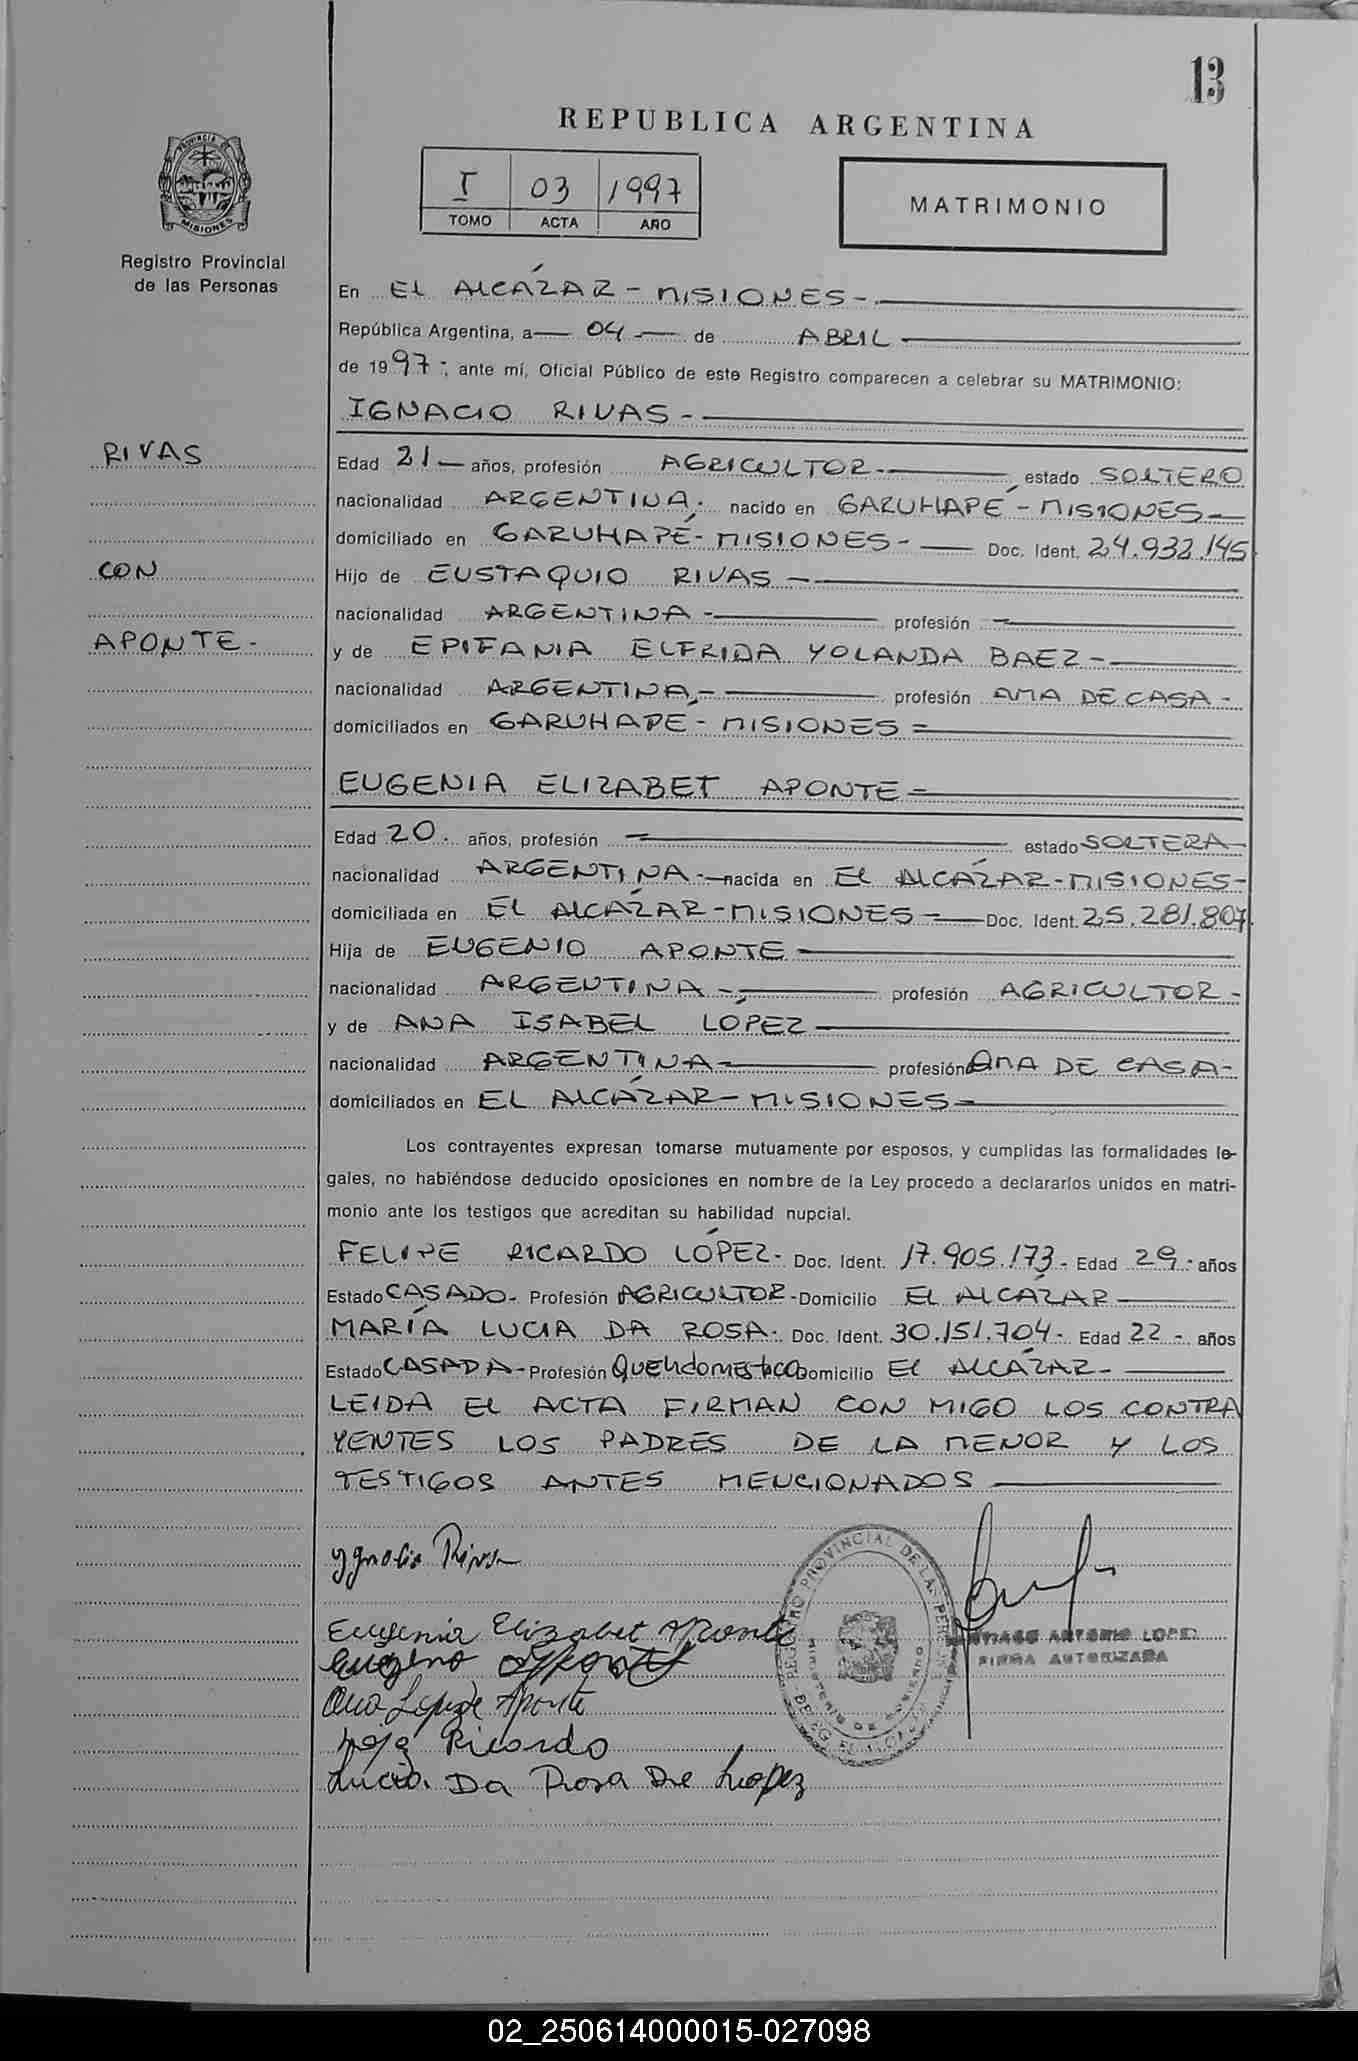 13
REPUBLICA ARGENTINA
I 03 1997
TOMO ACTA AÑO
MATRIMONIO
PROVINCIA DE
MISIONES
Registro Provincial
de las Personas
En EL ALCÁZAR - MISIONES -
República Argentina, a 04 de ABRIL
de 1997 -, ante mí, Oficial Público de este Registro comparecen a celebrar su MATRIMONIO:
IGNACIO RIVAS -
RIVAS
CON
APONTE -
Edad 21 años, profesión AGRICULTOR - estado SOLTERO
nacionalidad ARGENTINA. nacido en GARUHAPÉ - MISIONES -
domiciliado en GARUHAPÉ - MISIONES - Doc. Ident. 24.932.145
Hijo de EUSTAQUIO RIVAS -
nacionalidad ARGENTINA - profesión -
y de EPIFANIA ELFRIDA YOLANDA BAEZ -
nacionalidad ARGENTINA - profesión AMA DE CASA -
domiciliados en GARUHAPÉ - MISIONES =
EUGENIA ELIZABET APONTE =
Edad 20. años, profesión - estado SOLTERA -
nacionalidad ARGENTINA - nacida en EL ALCÁZAR - MISIONES -
domiciliada en EL ALCÁZAR - MISIONES - Doc. Ident. 25.281.807
Hija de EUGENIO APONTE
nacionalidad ARGENTINA - profesión AGRICULTOR -
y de ANA ISABEL LÓPEZ
nacionalidad ARGENTINA profesión AMA DE CASA -
domiciliados en EL ALCÁZAR - MISIONES -
Los contrayentes expresan tomarse mutuamente por esposos, y cumplidas las formalidades le-
gales, no habiéndose deducido oposiciones en nombre de la Ley procedo a declararlos unidos en matri-
monio ante los testigos que acreditan su habilidad nupcial.
FELIPE RICARDO LÓPEZ - Doc. Ident. 17.905.173 - Edad 29 - años
Estado CASADO - Profesión AGRICULTOR - Domicilio EL ALCÁZAR
MARÍA LUCIA DA ROSA - Doc. Ident. 30.151.704 - Edad 22 - años
Estado CASADA - Profesión QUEHdomestico Domicilio EL ALCÁZAR -
LEIDA EL ACTA FIRMAN CON MIGO LOS CONTRA
YENTES LOS PADRES DE LA MENOR Y LOS
TESTIGOS ANTES MENCIONADOS
Ygnacio Rivas
Eugenia Elizabet Aponte
Eugeno Aponte
Ana Lopez de Aponte
Ricardo
Lucia. Da Rosa De Lopez
REGISTRO PROVINCIAL DE LAS
MINISTERIO DE GOBIERNO
ANTONIO LOPEZ
FIRMA AUTORIZADA
02_250614000015-027098